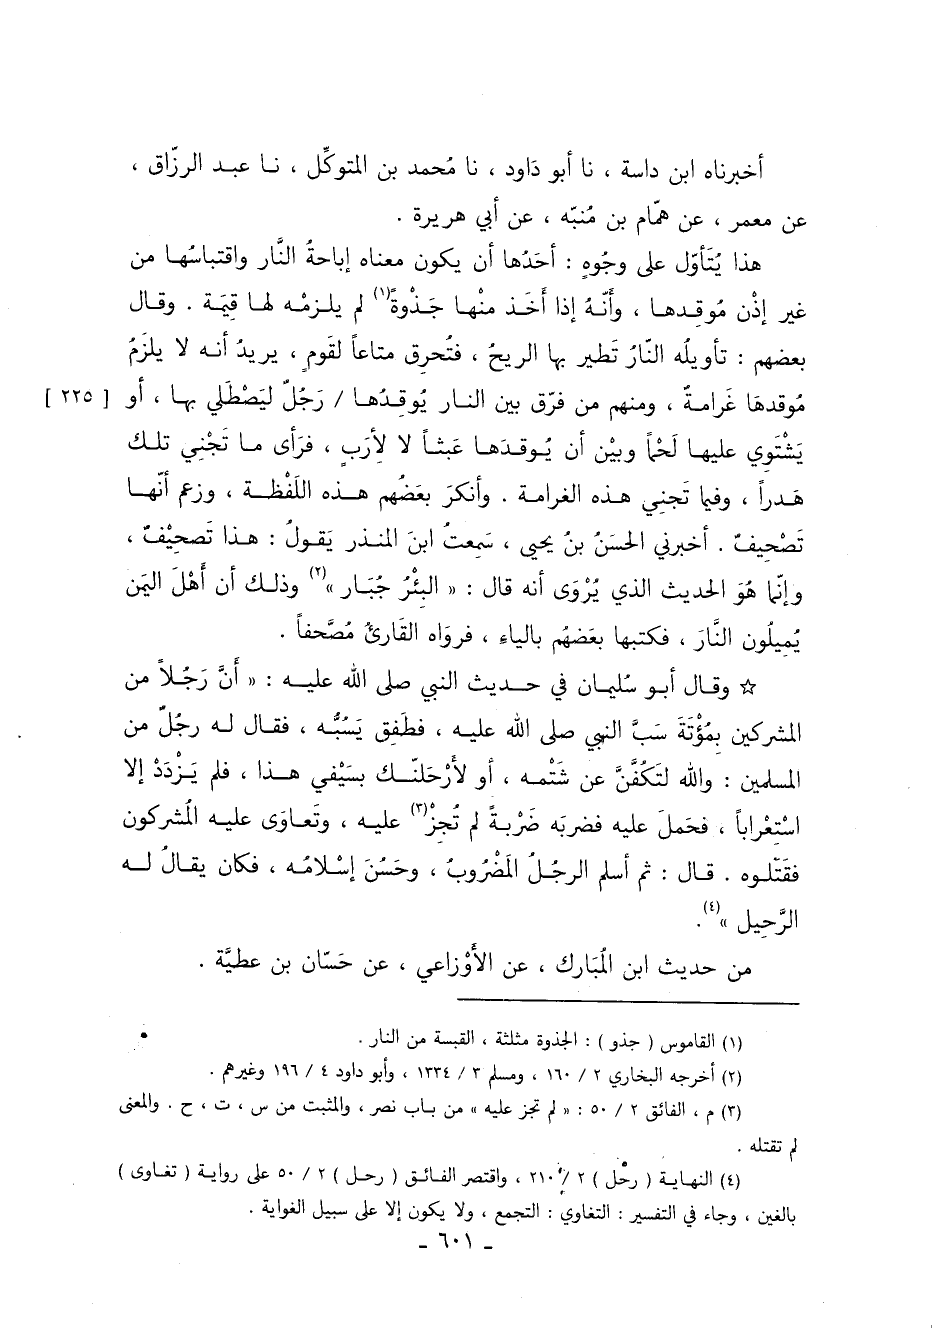 أخبرناه ابن داسة ، نا أبو دَاود ، نا مُحمد بن المتوكِّل ، نا عبد الرزّاق ،
عن معمر ، عن همّام بن مُنبّه ، عن أبي هريرة .
هذا يُتَأوّل على وجُوهٍ : أحَدُها أن يكون معناه إباحةُ النَّار واقتباسُها من
غير إذْن مُوقِدها ، وأنّهُ إذا أَخَذ منْها جَذْوةً(١) لم يلزمْه لها قِيَة . وقال
بعضهم : تأويلُه النّارُ تَطير بها الريحُ ، فتُحرق متاعاً لقَومٍ ، يريدُ أنه لا يلزَمُ
مُوقدهَا غَرامةٌ ، ومنهم من فرّق بين النار يُوقِدُها / رَجُلٌ ليَصْطَلي بها ، أو [ ٢٢٥ ]
يَشْتَوي عليها لَحْماً وبيْن أن يُوقدَها عَبثاً لا لأرَبٍ ، فرَأى ما تَجْني تلك
هَدراً ، وفيما تَجني هذه الغرامة . وأنكرَ بعَضُهم هذه اللَفْظة ، وزعم أنّها
تَصْحيفٌ . أخبرني الحسَنُ بنُ يحيى ، سَمِعتُ ابنَ المنذر يَقولُ : هذا تَصحيْفٌ ،
وإنّما هُوَ الحديث الذي يُرْوَى أنه قال : « البئْرُ جُبَار »(٢) وذلك أن أَهْلَ اليمَن
يُميلُون النَّارَ ، فكتبها بعَضهُم بالياء ، فروَاه القَارئُ مُصَّحفاً .
☆ وقال أبو سُليمان في حديث النبي صلى الله عليه : « أَنَّ رَجُلاً من
المشركين بمُؤْتَةَ سَبَّ النبي صلى الله عليه ، فطَفِق يَسُبُّه ، فقال له رجُلٌ من
المسلمين : والله لتَكُفَّنَّ عن شَتْمه ، أو لأرْحَلنّك بسَيْفي هذا ، فلم يَزْدَدْ إلا
اسْتِغْراباً ، فحَملَ عليه فضربَه ضَرْبةً لم تُجِزْ(٣) عليه ، وتَعاوَى عليه المُشركون
فقَتَلوه . قال : ثم أسلم الرجلُ المَضْروبُ ، وحَسُنَ إسْلامُه ، فكان يقالُ له
الرَّحِيل »(٤).
من حديث ابن المُبَارك ، عن الأَوْزاعي ، عن حَسّان بن عطيَّة .
(١) القاموس ( جذو ) : الجذوة مثلثة ، القبسة من النار .
(٢) أخرجه البخاري ٢ / ١٦٠ ، ومسلم ٣ / ١٣٣٤ ، وأبو داود ٤ / ١٩٦ وغيرهم .
(٣) م ، الفائق ٢ / ٥٠ : « لم تجز عليه » من باب نصر ، والمثبت من س ، ت ، ح . والمعنى
لم تقتله .
(٤) النهاية ( رحل ) ٢ / ٢١٠ ، واقتصر الفائق ( رحل ) ٢ / ٥٠ على رواية ( تغاوى )
بالغين ، وجاء في التفسير : التغاوي : التجمع ، ولا يكون إلا على سبيل الغواية .
- ٦٠١ -